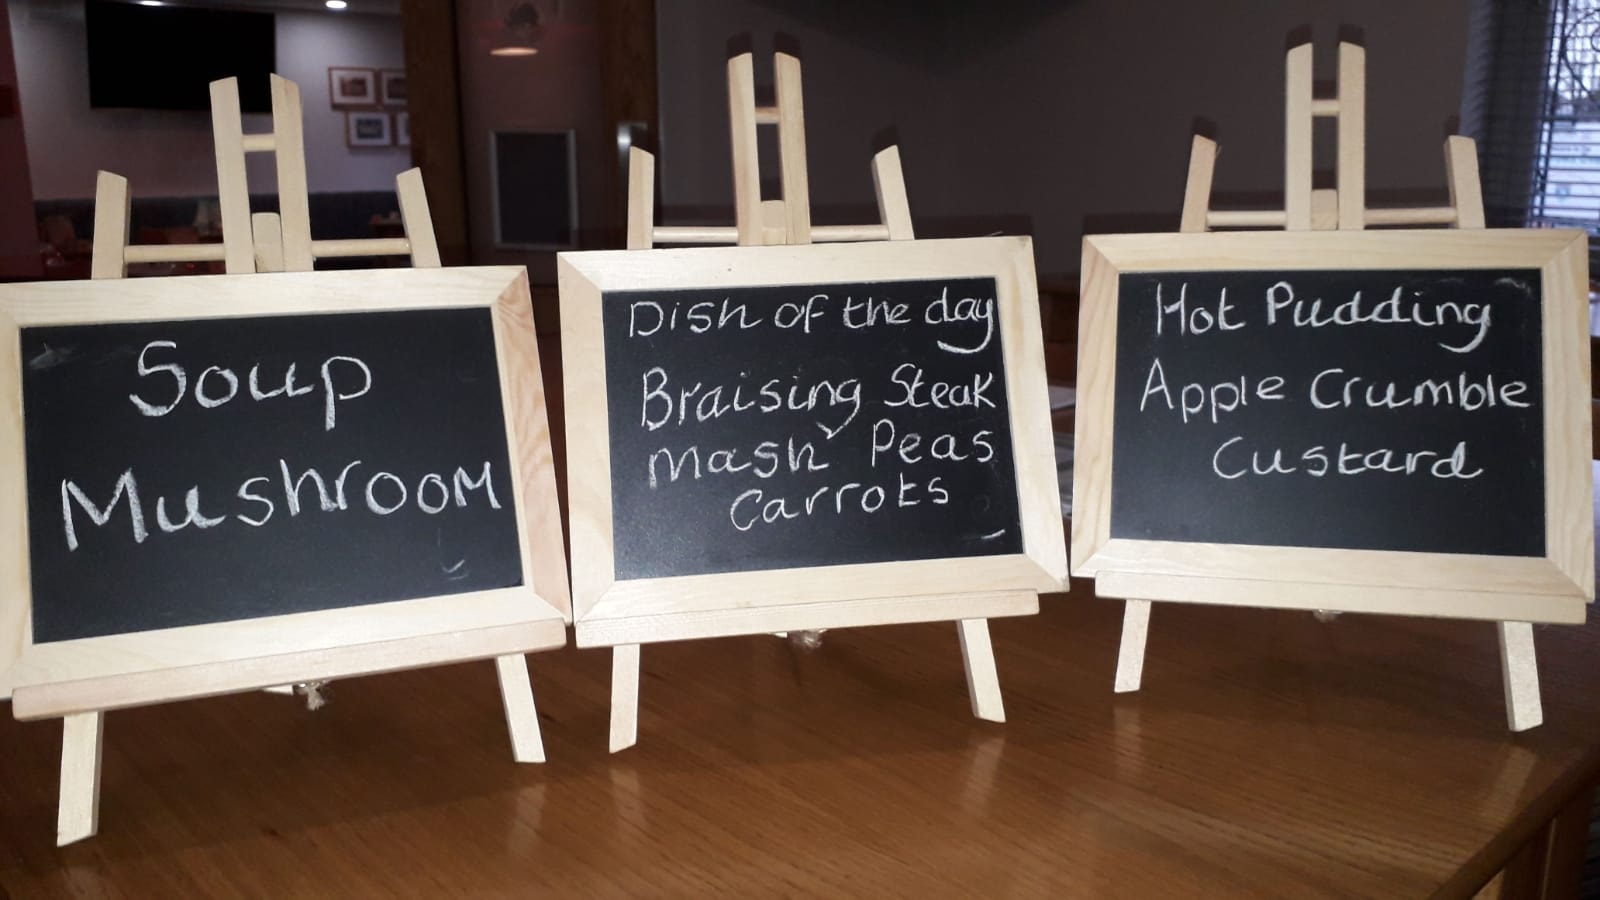 Soup
Mushroom
Dish of the day
Braising Steak
Mash Peas
Carrots
Hot Pudding
Apple Crumble
Custard